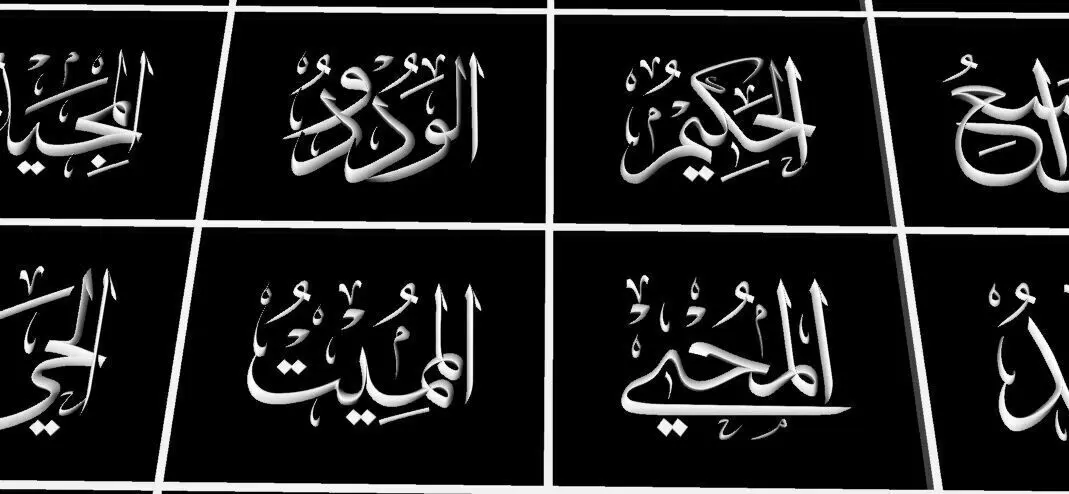 الْحَكِيمُ الْوَدُودُ
الْمُحْيِي الْمُمِيتُ الْحَي